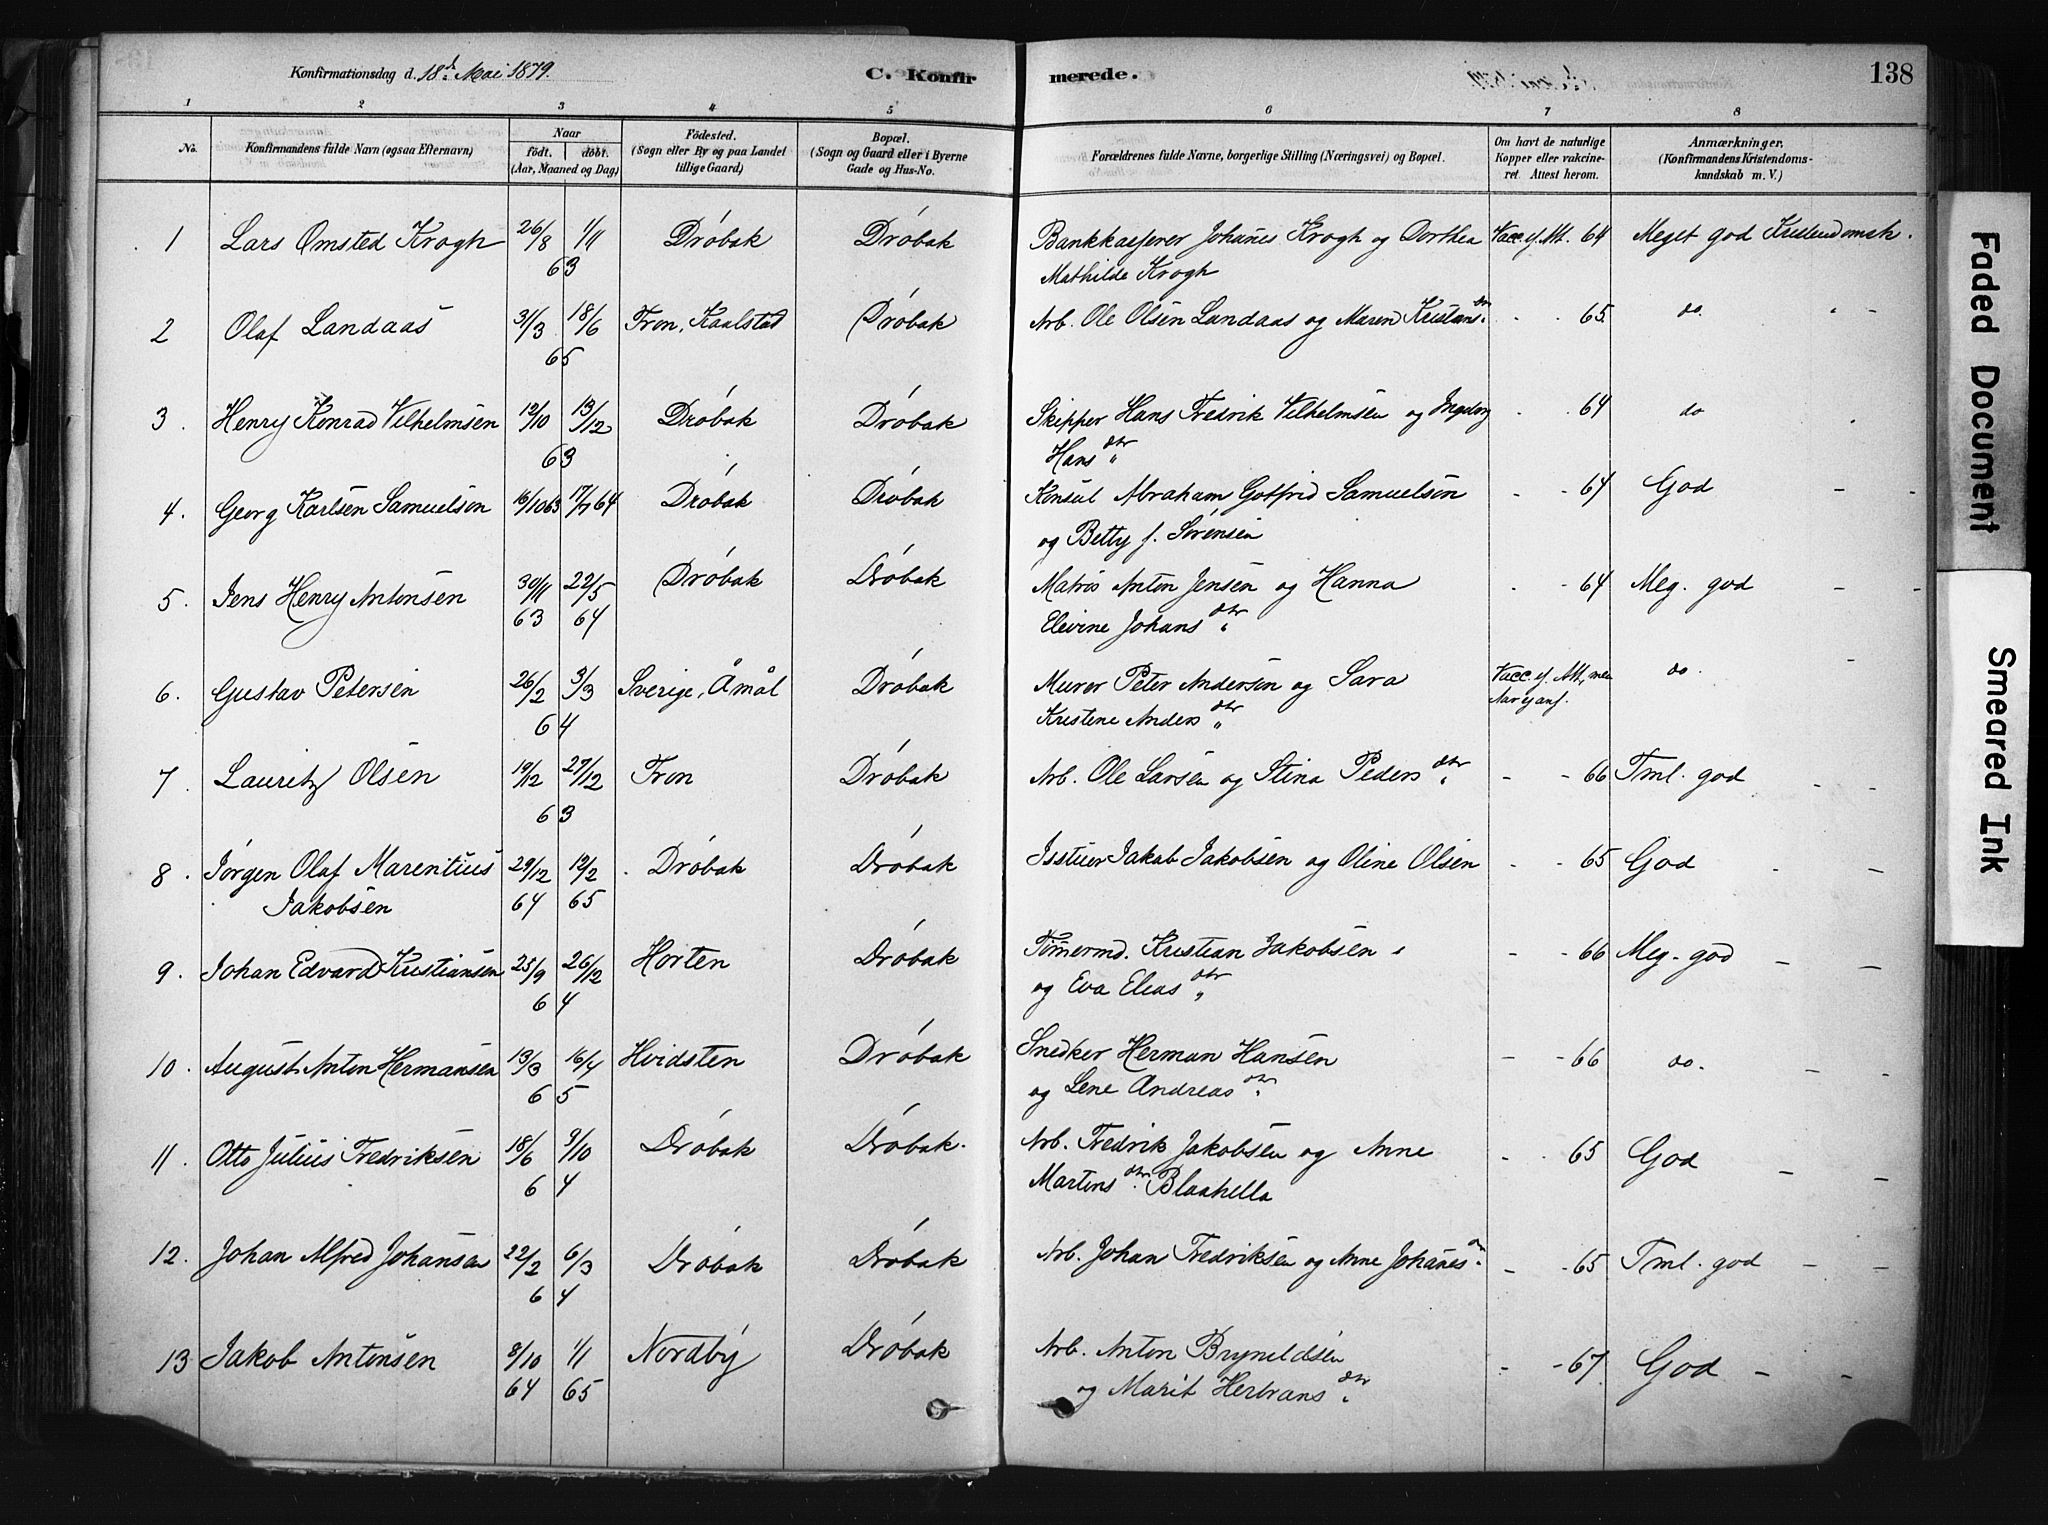 Konfirmationsdag d. 18de Mai 1879. C. Konfirmerede. 138
1 2 3 4 5 6 7 8
No. Konfirmandens fulde Navn (ogsaa Efternavn) Naar født. døbt. (Aar, Maaned og Dag) Fødested. (Sogn eller By og paa Landet tillige Gaard) Bopæl. (Sogn og Gaard eller i Byerne Gade og Hus-No. Forældrenes fulde Navne, borgerlige Stilling (Næringsvei) og Bopæl. Om havt de naturlige Kopper eller vakcineret. Attest herom. Anmærkninger. (Konfirmandens Kristendomskundskab m. V.)
1 Lars Omsted Krogh 26/8 1/11 Drøbak Drøbak Bankkasserer Johanes Krogh og Dorthea Vacc. ef. Att. 64 Meget god Kristendomsk.
63 Mathilde Krogh
2 Olaf Landaas 31/3 18/6 Fron, Kaalstad Drøbak Arb. Ole Olsen Landaas og Maren Kristansdtr - - 65. do.
65
3. Henry Konrad Vilhelmsen 12/10 13/12 Drøbak Drøbak Skipper Hans Fredrik Vilhelmsen og Ingeborg - - 64 do
63 Hansdtr
4. Georg Karlsen Samuelsen 16/10 63 17/7 64 Drøbak Drøbak Konsul Abraham Gotfrid Samuelsen - - 64 God
og Betty f. Sørensen
5. Jens Henry Antonsen 30/11 22/5 Drøbak Drøbak Matros Anton Jensen og Hanna - - 64 Meg. god
63 64 Elevine Johansdtr
6. Gustav Petersen 26/2 3/3 Sverige, Åmål Drøbak Murer Peter Andersen og Sara Vacc. ef. Att., men do.
64 Kristene Andersdtr Aar ej anf.
7. Lauritz Olsen 19/12 27/12 Fron Drøbak Arb. Ole Larsen og Stina Pedersdtr - - 66 Tml. god
63
8. Jørgen Olaf Marentius 29/12 12/2 Drøbak Drøbak Isstuer Jakob Jakobsen og Oline Olsen - - 65 God
Jakobsen 64 65
9. Johan Edvard Kristiansen 25/9 26/12 Horten Drøbak Tømermd. Kristian Jakobsen - - 66 Meg. god
64 og Eva Eliasdtr
10. August Anton Hermansen 13/3 16/4 Hvidsten Drøbak Snedker Herman Hansen - - 66 do.
65 og Lene Andreasdtr
11. Otto Julius Fredriksen 18/6 9/10 Drøbak Drøbak. Arb. Fredrik Jakobsen og Anne - - 65 God
64 Martinsdtr Blaahella
12. Johan Alfred Johansen 22/2 6/3 Drøbak Drøbak Arb. Johan Fredriksen og Anne Johanesdtr - - 65 Tml. god
64
13 Jakob Antonsen 8/10 1/1 Nordby Drøbak Arb. Anton Brynildsen - - 67. God
64 65 og Marit Herbransdtr
Faded Document
Smeared Ink